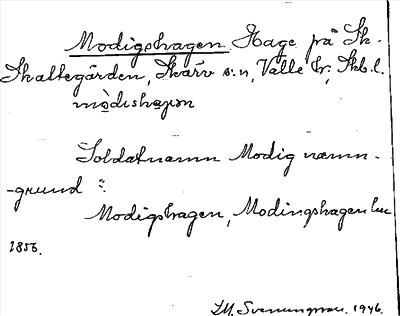 Modigshagen Hage på Sk.
Skattegården, Skärv s:n, Valle hr; Skb.l.
mòdishaɡən
Soldatnamn Modig namn-
-grund :
Modigshagen, Modingshagen
1856.
1946.